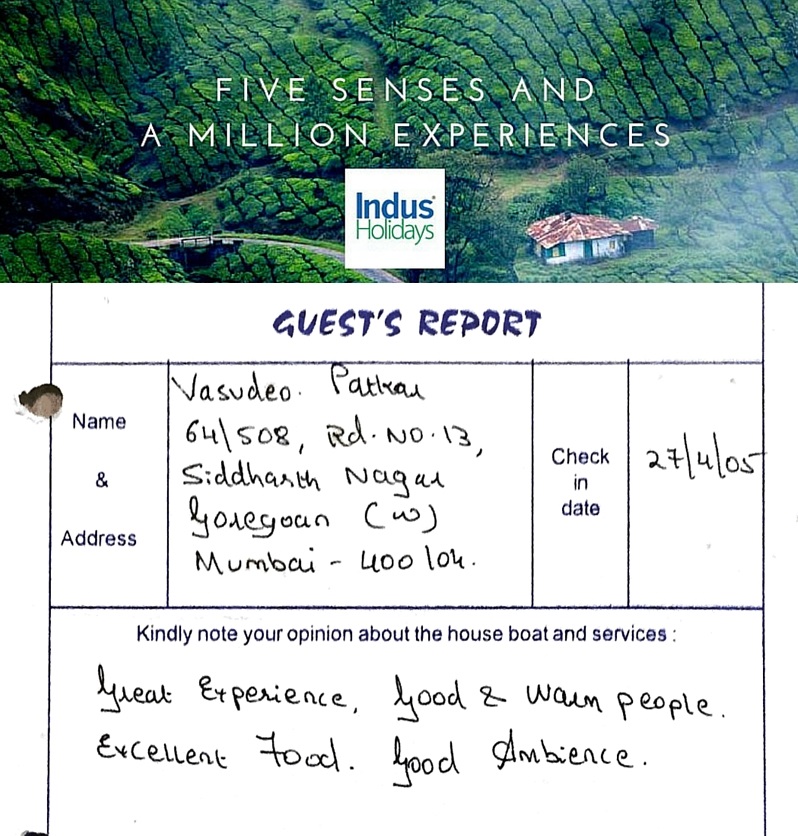 FIVE SENSES AND
A MILLION EXPERIENCES
Indus®
Holidays
GUEST'S REPORT
Name
&
Address
Vasudeo. Patkar
64/508, Rd. No. 13,
Siddharth Nagar
Goregoan (W)
Mumbai - 400 104.
Check
in
date
27/4/05
Kindly note your opinion about the house boat and services :
Great Experience, Good & Warm people.
Excellent Food. Good Ambience.